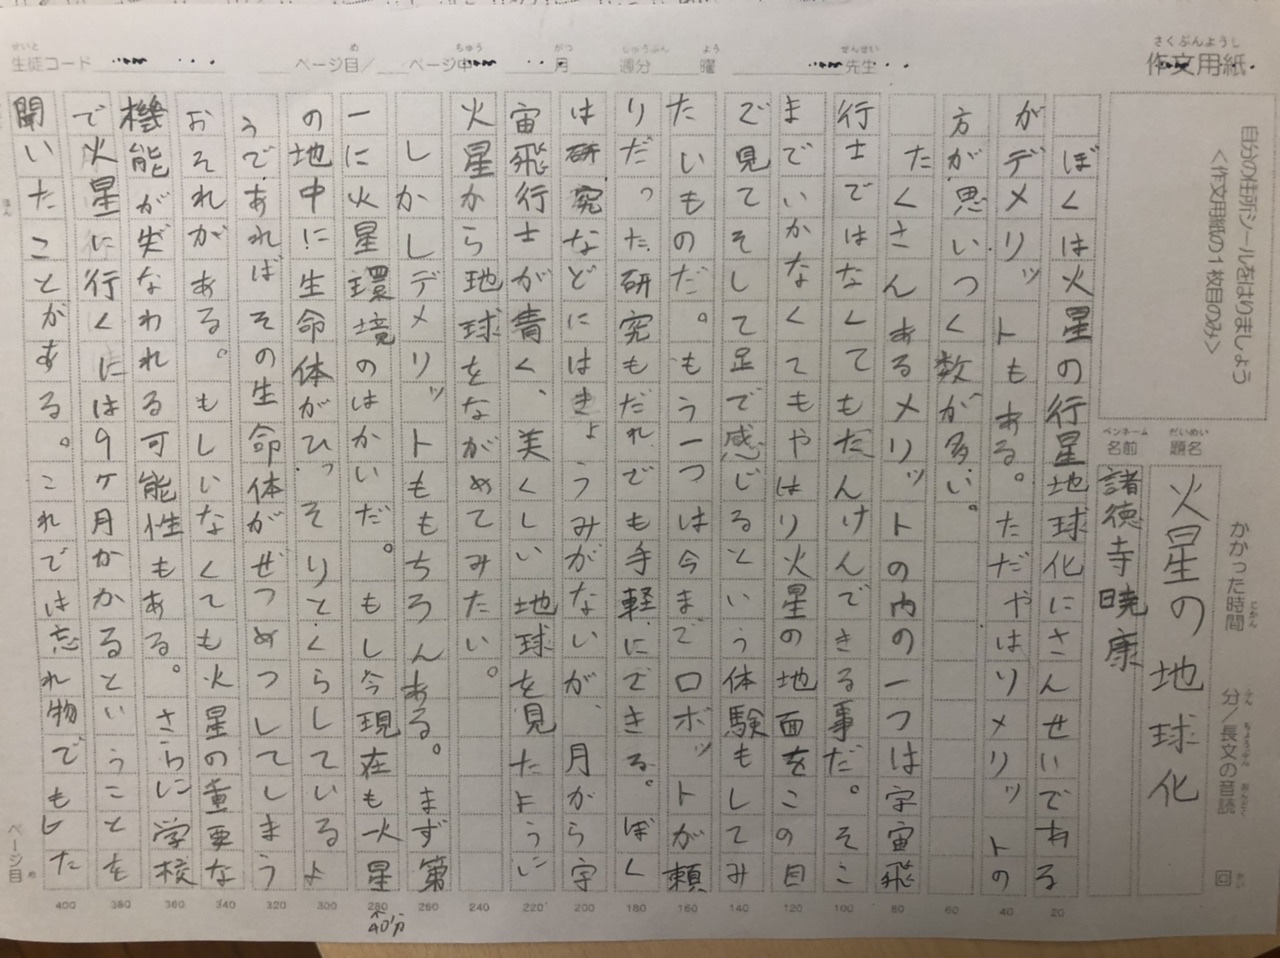 さくぶんようし
作文用紙
自分の住所シールをはりましょう
<作文用紙の1枚目のみ>
せいと
生徒コード
め
ページ目/
ちゅう
ページ中
がつ
月
しゅうぶん
週分
よう
曜
せんせい
先生
かかった時間
じかん
分/長文の音読
回
だいめい
題名
火星の地球化
ペンネーム
名前
諸徳寺暁康
ぼくは火星の行星地球化にさんせいである
がデメリットもある。ただやはりメリットの
方が思いつく数が多い。
たくさんあるメリットの内の一つは宇宙飛
行士ではなくてもたんけんできる事だ。そこ
までいかなくてもやはり火星の地面をこの目
で見てそして足で感じるという体験もしてみ
たいものだ。もう一つは今までロボットが頼
りだった研究もだれでも手軽にできる。ぼく
は研究などにはきょうみがないが、月から宇
宙飛行士が青く、美くしい地球を見たように
火星から地球をながめてみたい。
しかしデメリットももちろんある。まず第
一に火星環境のはかいだ。もし今現在も火星
の地中に生命体がひっそりとくらしているよ
うであればその生命体がぜつめつしてしまう
おそれがある。もしいなくても火星の重要な
機能が失なわれる可能性もある。さらに学校
で火星に行くには9ヶ月かかるということを
聞いたことがある。これでは忘れ物でもした
20
40
60
80
100
120
140
160
180
200
220
240
260
280
300
320
340
360
380
400
40分
ページ目
め